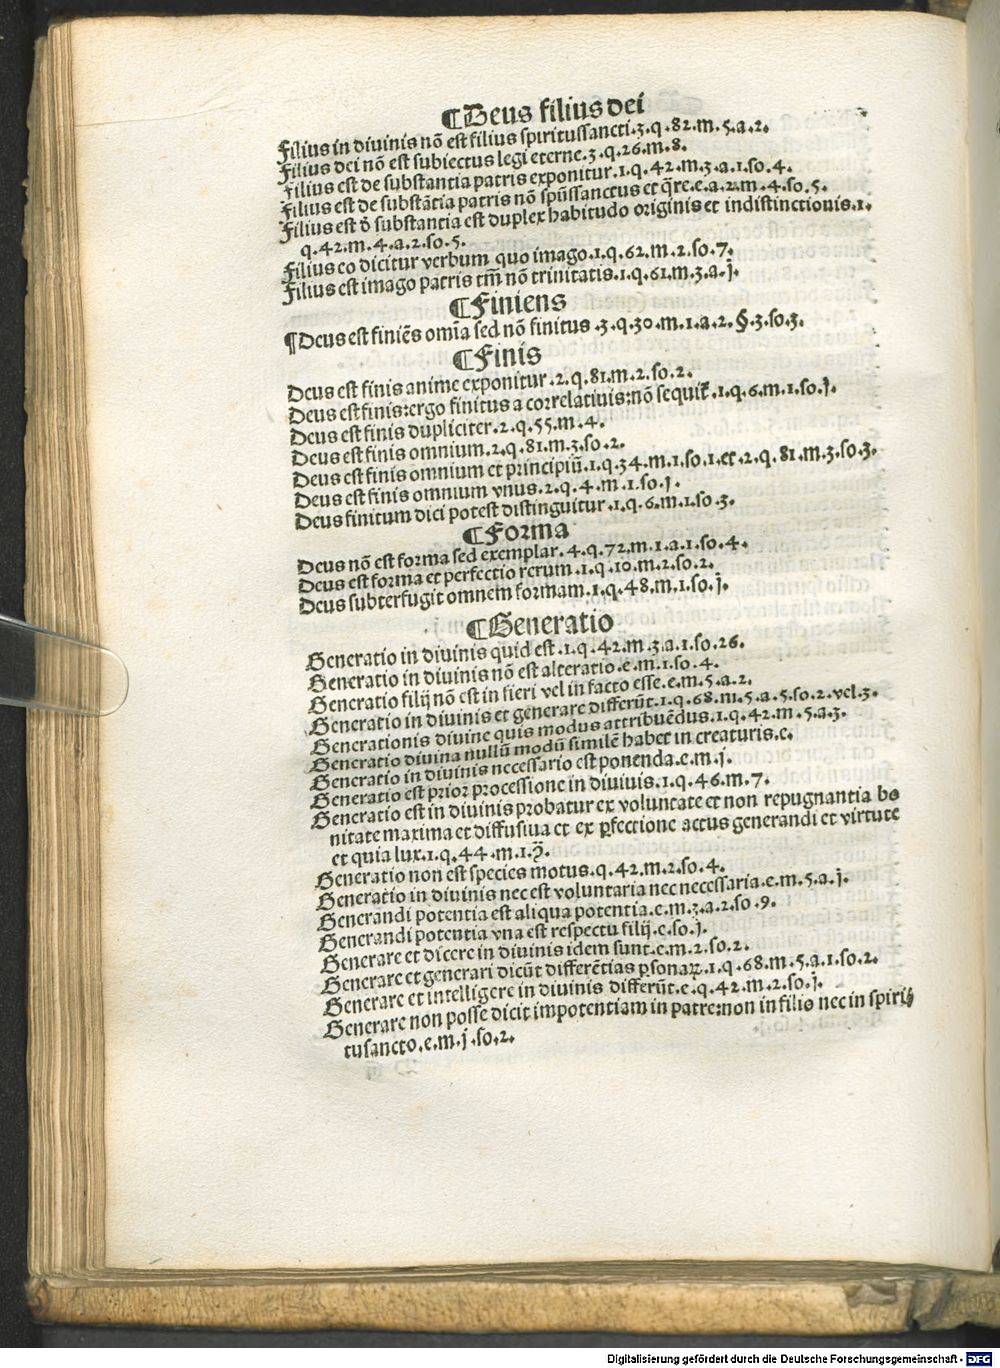 ¶Deus filius dei
Filius in diuinis nõ est filius spiritussancti.3.q.82.m.5.a.2.
Filius dei nõ est subiectus legi eterne.3.q.26.m.8.
Filius est de substantia patris exponitur.1.q.42.m.3.a.1.so.4.
Filius est de substãtia patris nõ spũssanctus et q̃re.e.a.2.m.4.so.5.
Filius est ð substantia est duplex habitudo originis et indistinctionis.1.
q.42.m.4.a.2.so.5.
Filius eo dicitur verbum quo imago.1.q.62.m.2.so.7.
Filius est imago patris tm̃ nõ trinitatis.1.q.61.m.3.a.j.
¶Finiens
¶Deus est finiẽs omĩa sed nõ finitus.3.q.30.m.1.a.2.§.3.so.3.
¶Finis
Deus est finis anime exponitur.2.q.81.m.2.so.2.
Deus est finis:ergo finitus a correlatiuis:nõ sequit᷑.1.q.6.m.1.so.j.
Deus est finis dupliciter.2.q.55.m.4.
Deus est finis omnium.2.q.81.m.3.so.2.
Deus est finis omnium et principiũ.1.q.34.m.1.so.1.et.2.q.81.m.3.so.3.
Deus est finis omnium vnus.2.q.4.m.1.so.j.
Deus finitum dici potest distinguitur.1.q.6.m.1.so.3.
¶Forma
Deus nõ est forma sed exemplar.4.q.72.m.1.a.1.so.4.
Deus est forma et perfectio rerum.1.q.10.m.2.so.2.
Deus subterfugit omnem formam.1.q.48.m.1.so.j.
¶Generatio
Generatio in diuinis quid est.1.q.42.m.3.a.1.so.26.
Generatio in diuinis nõ est alteratio.e.m.1.so.4.
Generatio filij nõ est in fieri vel in facto esse.e.m.5.a.2.
Generatio in diuinis et generare differũt.1.q.68.m.5.a.5.so.2.vel.3.
Generationis diuine quis modus attribuẽdus.1.q.42.m.5.a.3.
Generatio diuina nullũ modũ similẽ habet in creaturis.e.
Generatio in diuinis necessario est ponenda.e.m.j.
Generatio est prior processione in diuiuis.1.q.46.m.7.
Generatio est in diuinis probatur ex voluntate et non repugnantia bo
nitate maxima et diffusiua et ex ꝑfectione actus generandi et virtute
et quia lux.1.q.44.m.1.
Generatio non est species motus.q.42.m.2.so.4.
Generatio in diuinis nec est voluntaria nec necessaria.e.m.5.a.j.
Generandi potentia est aliqua potentia.e.m.3.a.2.so.9.
Generandi potentia vna est respectu filij.e.so.j.
Generare et dicere in diuinis idem sunt.e.m.2.so.2.
Generare et generari dicũt differẽtias ꝑsonaꝝ.1.q.68.m.5.a.1.so.2.
Generare et intelligere in diuinis differũt.e.q.42.m.2.so.j.
Generare non posse dicit impotentiam in patre:non in filio nec in spiri
tusancto.e.m.j.so.2.
Digitalisierung gefördert durch die Deutsche Forschungsgemeinschaft - DFG